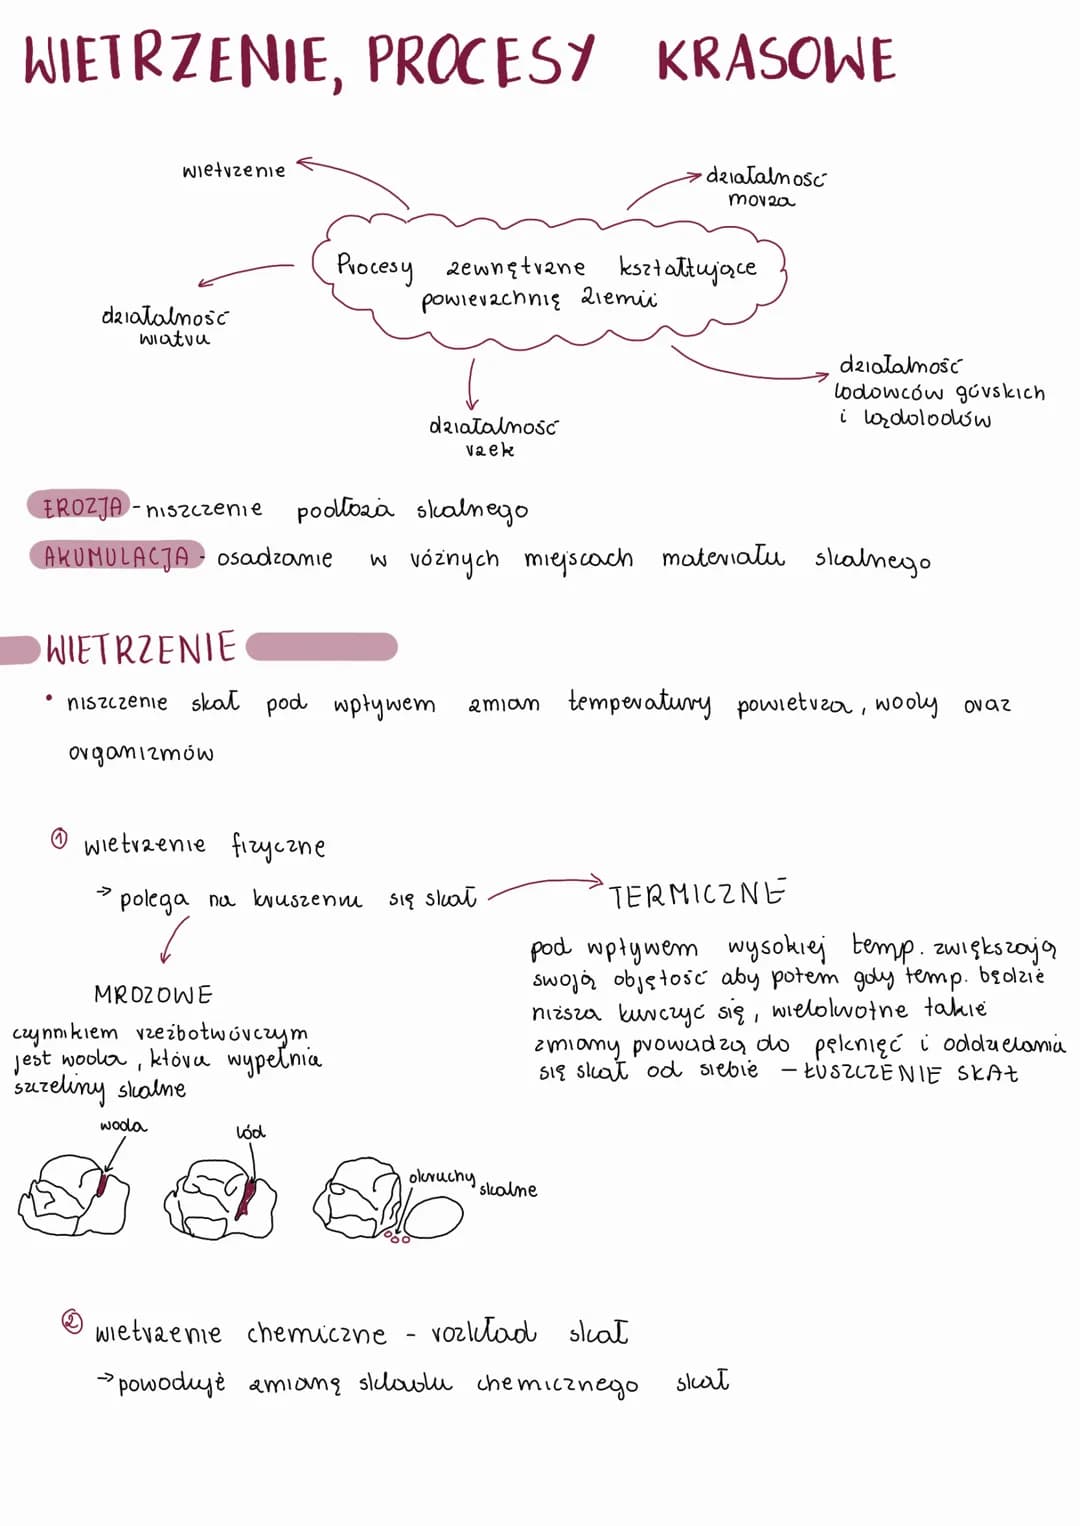 WIETRZENIE, PROCESY KRASOWE
wietrzenie
działalność
morza
Procesy zewnętrzne kształtujące
powierzchnię ziemii
działalność
wiatru
działalność
rzek
działalność
lodowców górskich
i lądolodów
EROZJA - niszczenie podłoża skalnego
AKUMULACJA - osadzanie w różnych miejscach materiału skalnego
WIETRZENIE
• niszczenie skał pod wpływem zmian temperatury powietrza, wody oraz
organizmów
① wietrzenie fizyczne
→ polega na kruszeniu się skał
TERMICZNE
pod wpływem wysokiej temp. zwiększają
swoją objętość aby potem gdy temp. będzie
niższa kurczyć się, wielokrotne takie
zmiany prowadzą do pęknięć i oddzielania
się skał od siebie - ŁUSZCZENIE SKAŁ
MROZOWE
czynnikiem rzeźbotwórczym
jest woda, która wypełnia
szczeliny skalne
woda
lód
okruchy skalne
② wietrzenie chemiczne - rozkład skał
→ powoduje zmianę składu chemicznego skał